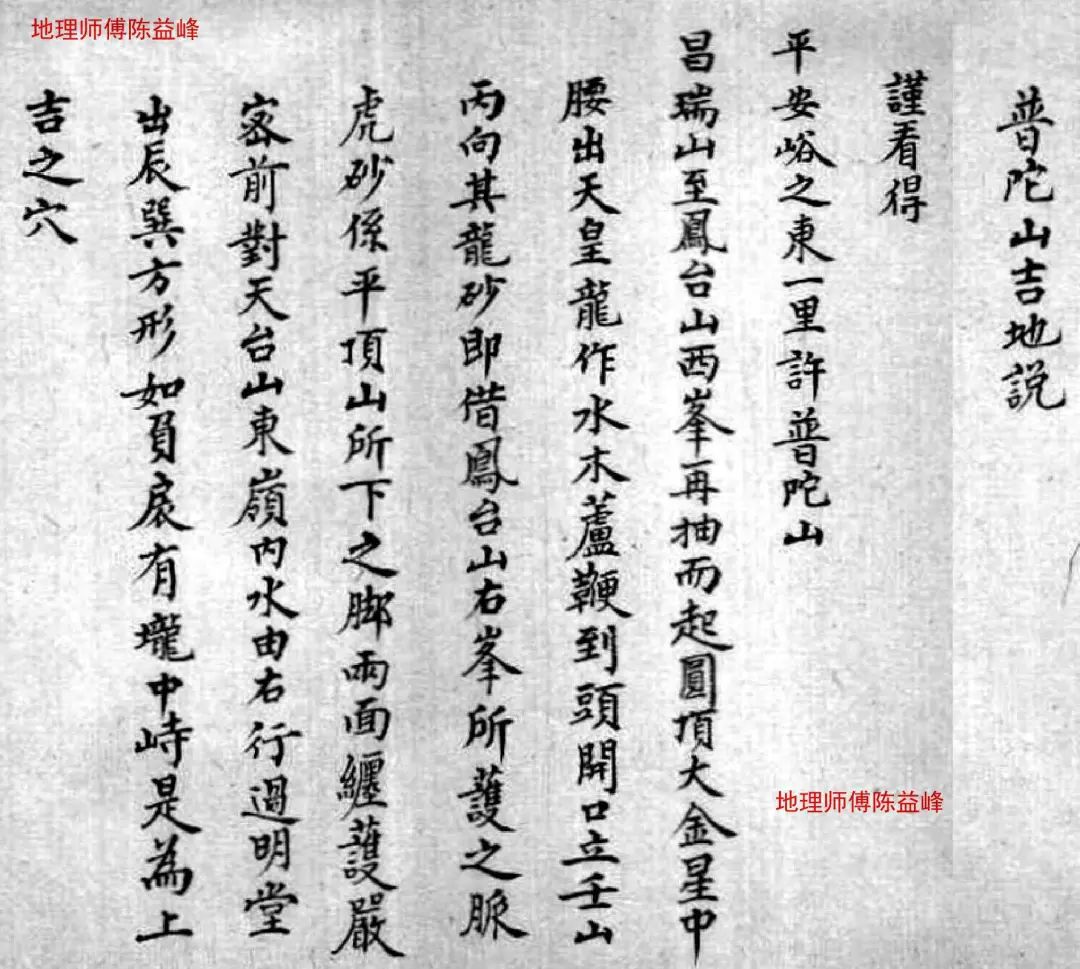 地理师傅陈益峰
普陀山吉地説
謹看得
平安峪之東一里許普陀山
昌瑞山至鳳台山西峯再抽而起圓頂大金星中
腰出天皇龍作水木蘆鞭到頭開口立壬山
丙向其龍砂即借鳳台山右峯所護之脈
虎砂係平頂山所下之脚兩面纒護嚴
宻前對天台山東嶺内水由右行過明堂
出辰巽方形如負扆有壠中峙是為上
吉之穴
地理师傅陈益峰